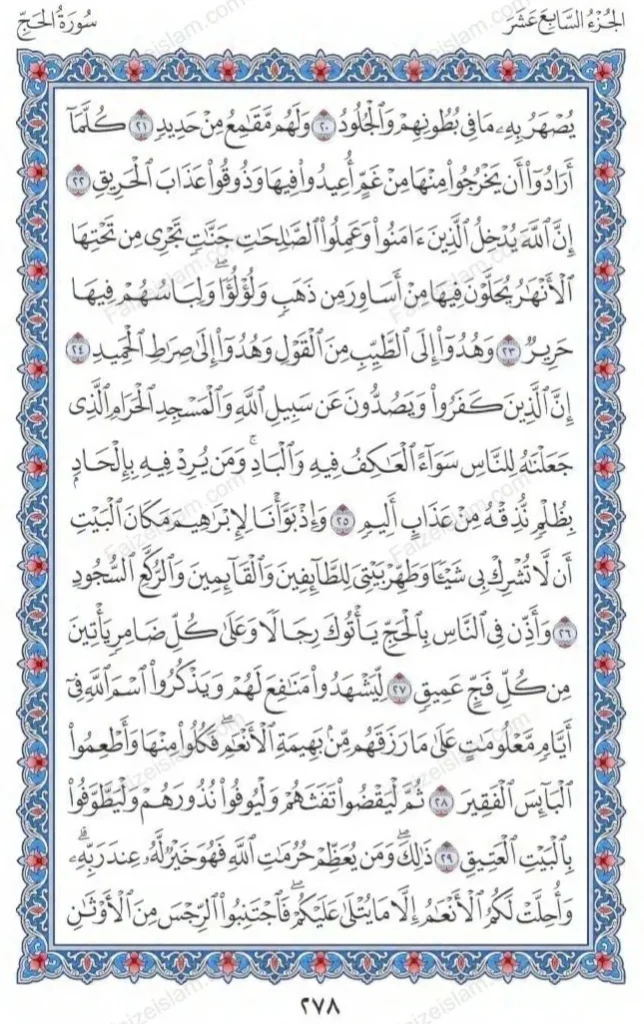 الجُزْءُ السَّابِعَ عَشَرَ
سُورَةُ الحَجِّ
يُصْهَرُ بِهِۦ مَا فِي بُطُونِهِمْ وَٱلْجُلُودُ ٢٠ وَلَهُم مَّقَٰمِعُ مِنْ حَدِيدٍ ٢١ كُلَّمَآ
أَرَادُوٓا۟ أَن يَخْرُجُوا۟ مِنْهَا مِنْ غَمٍّ أُعِيدُوا۟ فِيهَا وَذُوقُوا۟ عَذَابَ ٱلْحَرِيقِ ٢٢
إِنَّ ٱللَّهَ يُدْخِلُ ٱلَّذِينَ ءَامَنُوا۟ وَعَمِلُوا۟ ٱلصَّٰلِحَٰتِ جَنَّٰتٍ تَجْرِى مِن تَحْتِهَا
ٱلْأَنْهَٰرُ يُحَلَّوْنَ فِيهَا مِنْ أَسَاوِرَ مِن ذَهَبٍ وَلُؤْلُؤًا ۖ وَلِبَاسُهُمْ فِيهَا
حَرِيرٌ ٢٣ وَهُدُوٓا۟ إِلَى ٱلطَّيِّبِ مِنَ ٱلْقَوْلِ وَهُدُوٓا۟ إِلَىٰ صِرَٰطِ ٱلْحَمِيدِ ٢٤
إِنَّ ٱلَّذِينَ كَفَرُوا۟ وَيَصُدُّونَ عَن سَبِيلِ ٱللَّهِ وَٱلْمَسْجِدِ ٱلْحَرَامِ ٱلَّذِى
جَعَلْنَٰهُ لِلنَّاسِ سَوَآءً ٱلْعَٰكِفُ فِيهِ وَٱلْبَادِ ۚ وَمَن يُرِدْ فِيهِ بِإِلْحَادٍۭ
بِظُلْمٍ نُّذِقْهُ مِنْ عَذَابٍ أَلِيمٍ ٢٥ وَإِذْ بَوَّأْنَا لِإِبْرَٰهِيمَ مَكَانَ ٱلْبَيْتِ
أَن لَّا تُشْرِكْ بِى شَيْـًٔا وَطَهِّرْ بَيْتِىَ لِلطَّآئِفِينَ وَٱلْقَآئِمِينَ وَٱلرُّكَّعِ ٱلسُّجُودِ
٢٦ وَأَذِّن فِى ٱلنَّاسِ بِٱلْحَجِّ يَأْتُوكَ رِجَالًا وَعَلَىٰ كُلِّ ضَامِرٍ يَأْتِينَ
مِن كُلِّ فَجٍّ عَمِيقٍ ٢٧ لِّيَشْهَدُوا۟ مَنَٰفِعَ لَهُمْ وَيَذْكُرُوا۟ ٱسْمَ ٱللَّهِ فِىٓ
أَيَّامٍ مَّعْلُومَٰتٍ عَلَىٰ مَا رَزَقَهُم مِّنۢ بَهِيمَةِ ٱلْأَنْعَٰمِ ۖ فَكُلُوا۟ مِنْهَا وَأَطْعِمُوا۟
ٱلْبَآئِسَ ٱلْفَقِيرَ ٢٨ ثُمَّ لْيَقْضُوا۟ تَفَثَهُمْ وَلْيُوفُوا۟ نُذُورَهُمْ وَلْيَطَّوَّفُوا۟
بِٱلْبَيْتِ ٱلْعَتِيقِ ٢٩ ذَٰلِكَ ۖ وَمَن يُعَظِّمْ حُرُمَٰتِ ٱللَّهِ فَهُوَ خَيْرٌ لَّهُۥ عِندَ رَبِّهِۦ ۗ
وَأُحِلَّتْ لَكُمُ ٱلْأَنْعَٰمُ إِلَّا مَا يُتْلَىٰ عَلَيْكُمْ ۖ فَٱجْتَنِبُوا۟ ٱلرِّجْسَ مِنَ ٱلْأَوْثَٰنِ
٢٧٨
Faizeislam.com